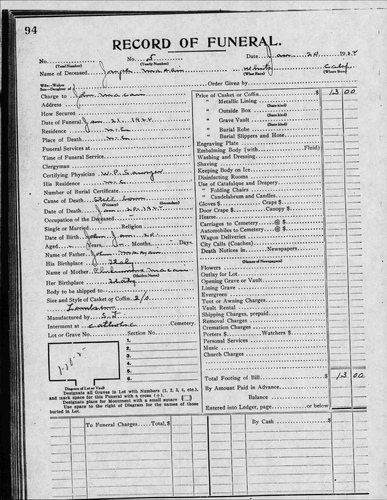 94
RECORD OF FUNERAL.
No. No. 5 Date Jan 20 192
(Total Number) (Yearly Number)
Name of Deceased Joseph White Calif
(What Race) (Where Born)
Wife—Widow
Son—Daughter of Order Given by
Charge to John
Address
How Secured
Date of Funeral Jan 21, 1924
Residence N.E.
Place of Death N.E.
Funeral Services at
Time of Funeral Service
Clergyman
Certifying Physician W.P. Sawyer
His Residence
Number of Burial Certificate
Cause of Death Still born
(Primary) (Secondary)
Date of Death Jan 20, 1924
Occupation of the Deceased
Single or Married Religion
Date of Birth Jan 20
Aged Years, Months, Days.
Name of Father, John
His Birthplace Italy
Name of Mother
(Maiden Name)
Her Birthplace Italy
Body to be shipped to
Size and Style of Casket or Coffin 2/0
Manufactured by S.F.
Interment at Catholic Cemetery.
Lot or Grave No. Section No.
1.
2.
3.
4.
5.
6.
Diagram of Lot or Vault
Designate all Graves in Lot with Numbers (1, 2, 3, 4, etc.,) and mark space for this Funeral with a cross (+).
Designate place for Monument with a small square
Use space to right of Diagram for the names of those buried in Lot.
Price of Casket or Coffin 13 00
" Metallic Lining
(State kind)
" Outside Box
(State kind)
" Grave Vault
(State kind)
" Burial Robe
" Burial Slippers and Hose
Engraving Plate
Embalming Body (with Fluid)
Washing and Dressing
Shaving
Keeping Body on Ice
Disinfecting Rooms
Use of Catafalque and Drapery
" Folding Chairs
" Candelabrum and Candles
Gloves $ Crape $
Door Crape $ Canopy $
Hearse
Carriages to Cemetery @ $
Automobiles to Cemetery @ $
Wagon Deliveries
City Calls (Coaches)
Death Notices in Newspapers.
(Names of Newspapers)
Flowers
Outlay for Lot
Opening Grave or Vault
Lining Grave
Evergreen
Tent or Awning Charges
Vault Rental
Shipping Charges, prepaid
Removal Charges
Cremation Charges
Porters $ Watchers $
Personal Services
Music
Church Charges
Total Footing of Bill $ 13 00
By Amount Paid in Advance
Balance
Entered into Ledger, page or below
To Funeral Charges Total, $ By Cash $